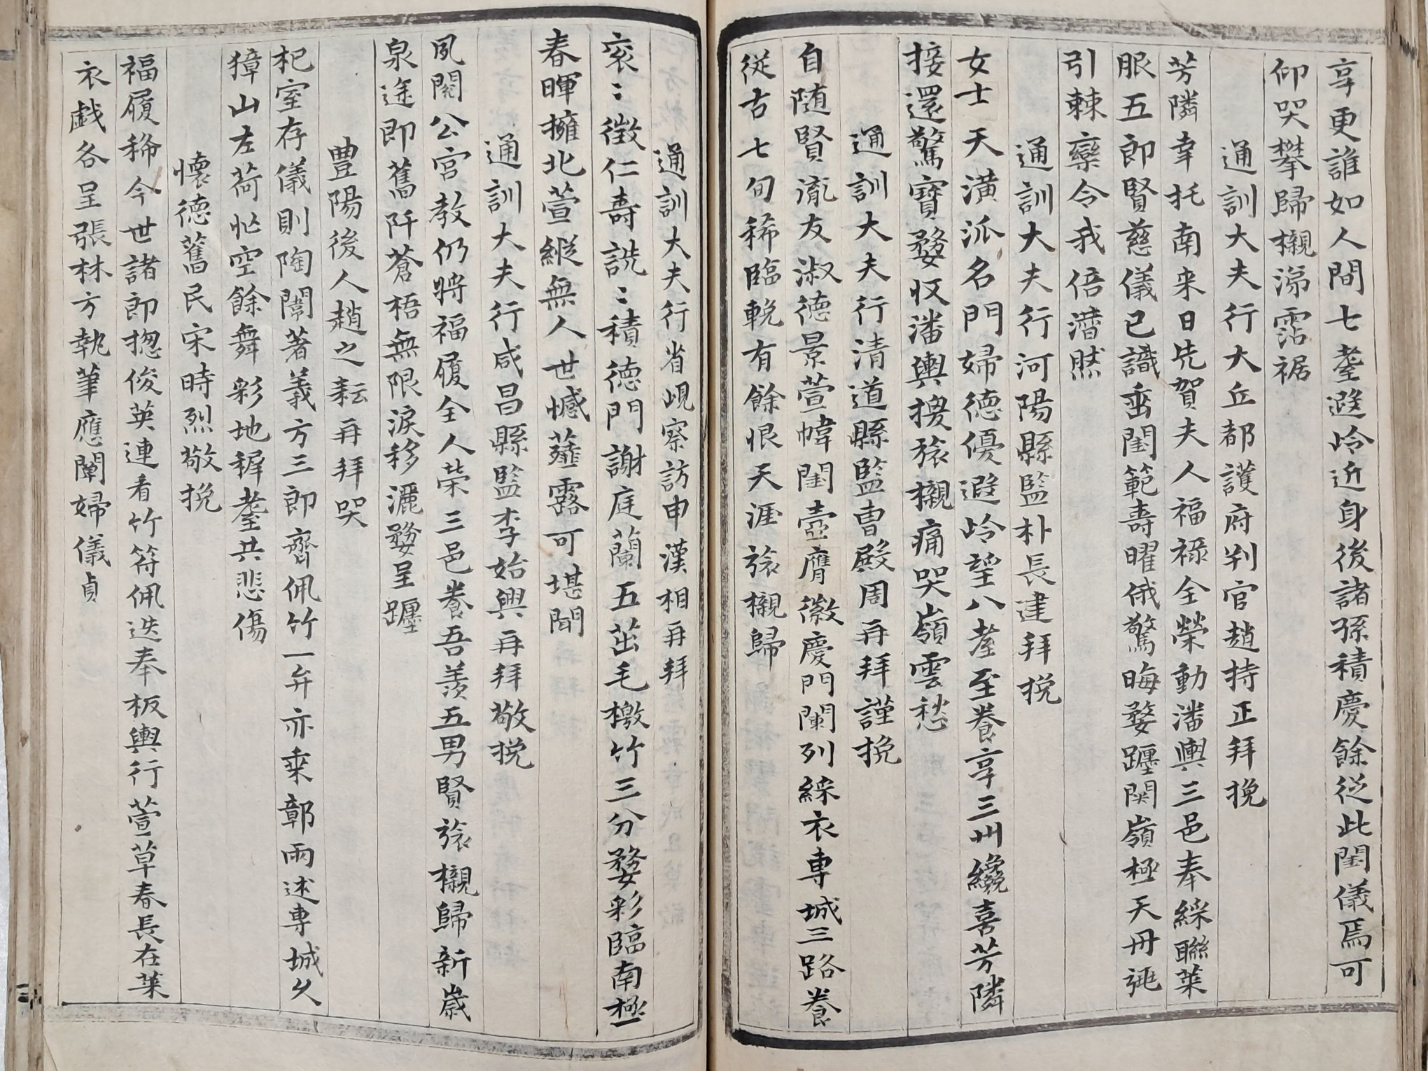 享更誰如人間七耋遐岭近身後諸孫積慶餘從此閨儀焉可
仰哭攀歸櫬涕霑裾
通訓大夫行大丘都護府判官趙持正拜挽
芳隣幸托南来日先賀夫人福祿全榮動潘輿三邑奉綵聯萊
服五郎賢慈儀已識當閨範壽曜俄驚晦婺躔関嶺極天丹旐
引棘欒令我倍潸然
通訓大夫行河陽縣監朴長建拜挽
女士天潢派名門婦德優遐岭望八耋至養享三州纔喜芳隣
接還驚寶婺収潘輿摠旅櫬痛哭嶺雲愁
通訓大夫行清道縣監曺殷周再拜謹挽
自随賢胤友淑德景萱幃閨壼膺徽慶門闌列綵衣専城三路養
從古七旬稀臨輓有餘恨天涯旅櫬歸
通訓大夫行省峴察訪申漢相再拜
衮〻徵仁壽詵〻積德門謝庭蘭五茁毛檄竹三分婺彩臨南極
春暉擁北萱縦無人世憾薤露可堪聞
通訓大夫行咸昌縣監李始興再拜敬挽
夙閑公宮教仍將福履全人榮三邑養吾羡五男賢旅櫬歸新歲
泉途即舊阡蒼梧無限淚移灑婺呈躔
豊陽後人趙之耘再拜哭
杞室存儀則陶閨著義方三郎齊佩竹一弁亦乗鄣兩述専城久
獐山左荷忙空餘舞彩地稺耋共悲傷
懷德舊民宋時烈敬挽
福履稀今世諸郎揔俊英連看竹符佩迭奉板輿行萱草春長在萊
衣戲各呈張林方執筆應闡婦儀貞